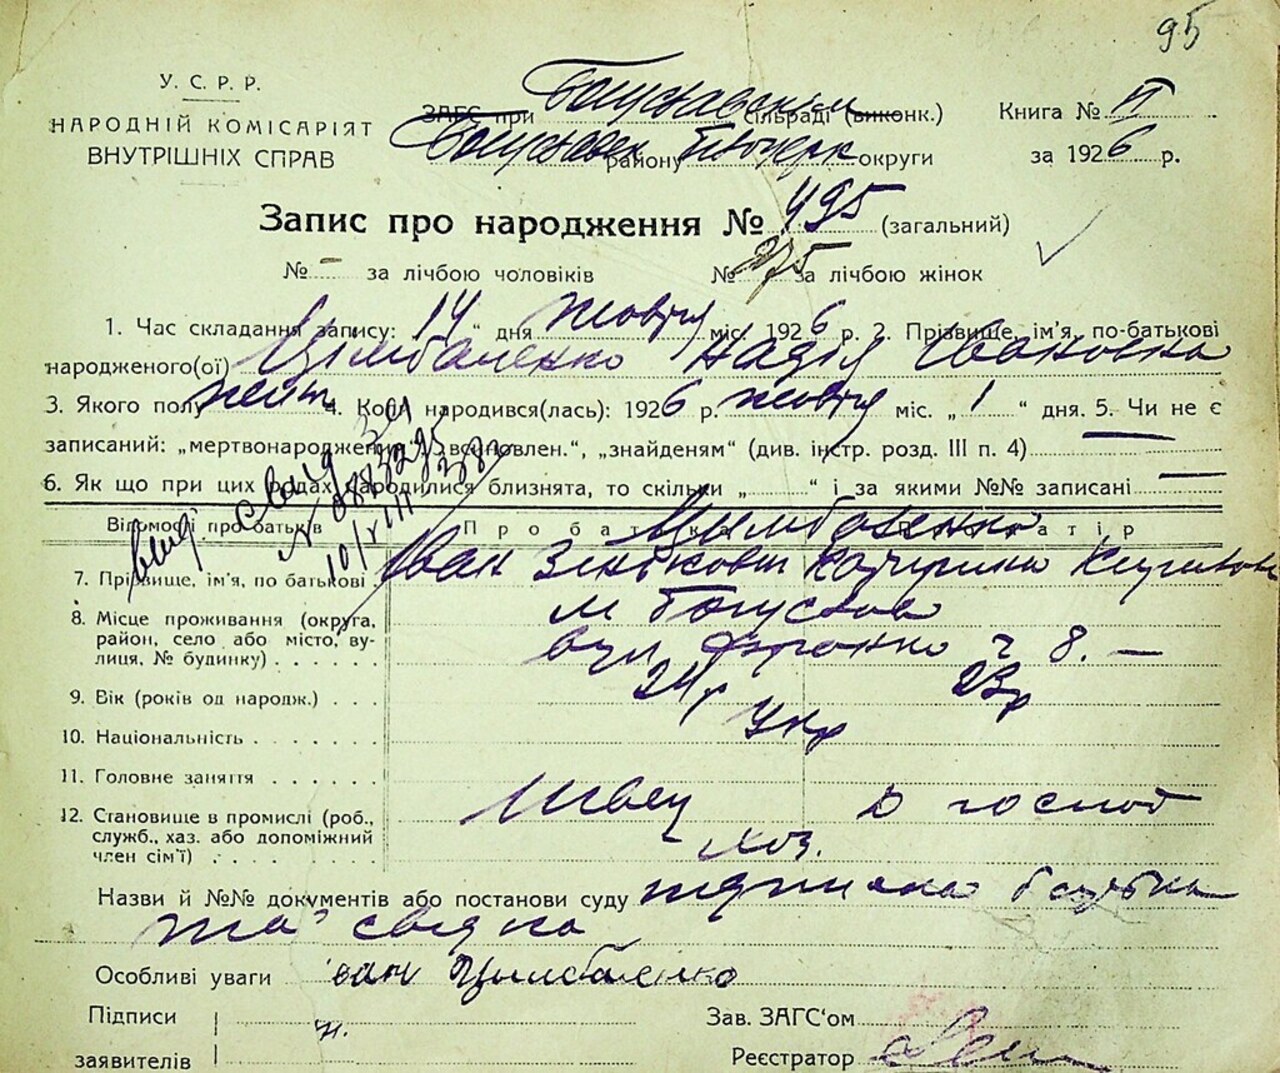 95
У. С. Р. Р.
НАРОДНІЙ КОМІСАРІЯТ
ВНУТРІШНІХ СПРАВ
ЗАГС при Богуславскім сільраді (виконк.)
Богуславск району Білоцерк округи
Книга № II
за 1926 р.
Запис про народження № 495 (загальний)
№ - за лічбою чоловіків № 275 за лічбою жінок
1. Час складання запису: 14 " дня жовтня міс. 1926 р. 2. Прізвище, ім'я, по-батькові
народженого(ої) Цімбаленко Надія Івановна
3. Якого полу жіт 4. Коли народився(лась): 1926 р. жовтня міс. „ 1 " дня. 5. Чи не є
записаний: „мертвонароджений", встановлен.", „знайденям" (див. інстр. розд. III п. 4) —
6. Як що при цих родах народилися близнята, то скільки „ " і за якими №№ записані —
виді свид
10/VIII
Відомості про батьків Про батька Про матір
Цимбаленко
7. Прізвище, ім'я, по батькові Іван Катерина
8. Місце проживання (округа, м Богуслав
район, село або місто, ву-
лиця, № будинку) вул Франко ч 8. —
9. Вік (років од народж.) 24 р 23 р
10. Національність Укр
11. Головне заняття
12. Становище в промислі (роб., Швец д господ
служб., хаз. або допоміжний хоз.
член сім'ї)
Назви й №№ документів або постанови суду
та свідка
Особливі уваги Іван Цимбаленко
Підписи
заявителів
Зав. ЗАГС'ом
Реєстратор